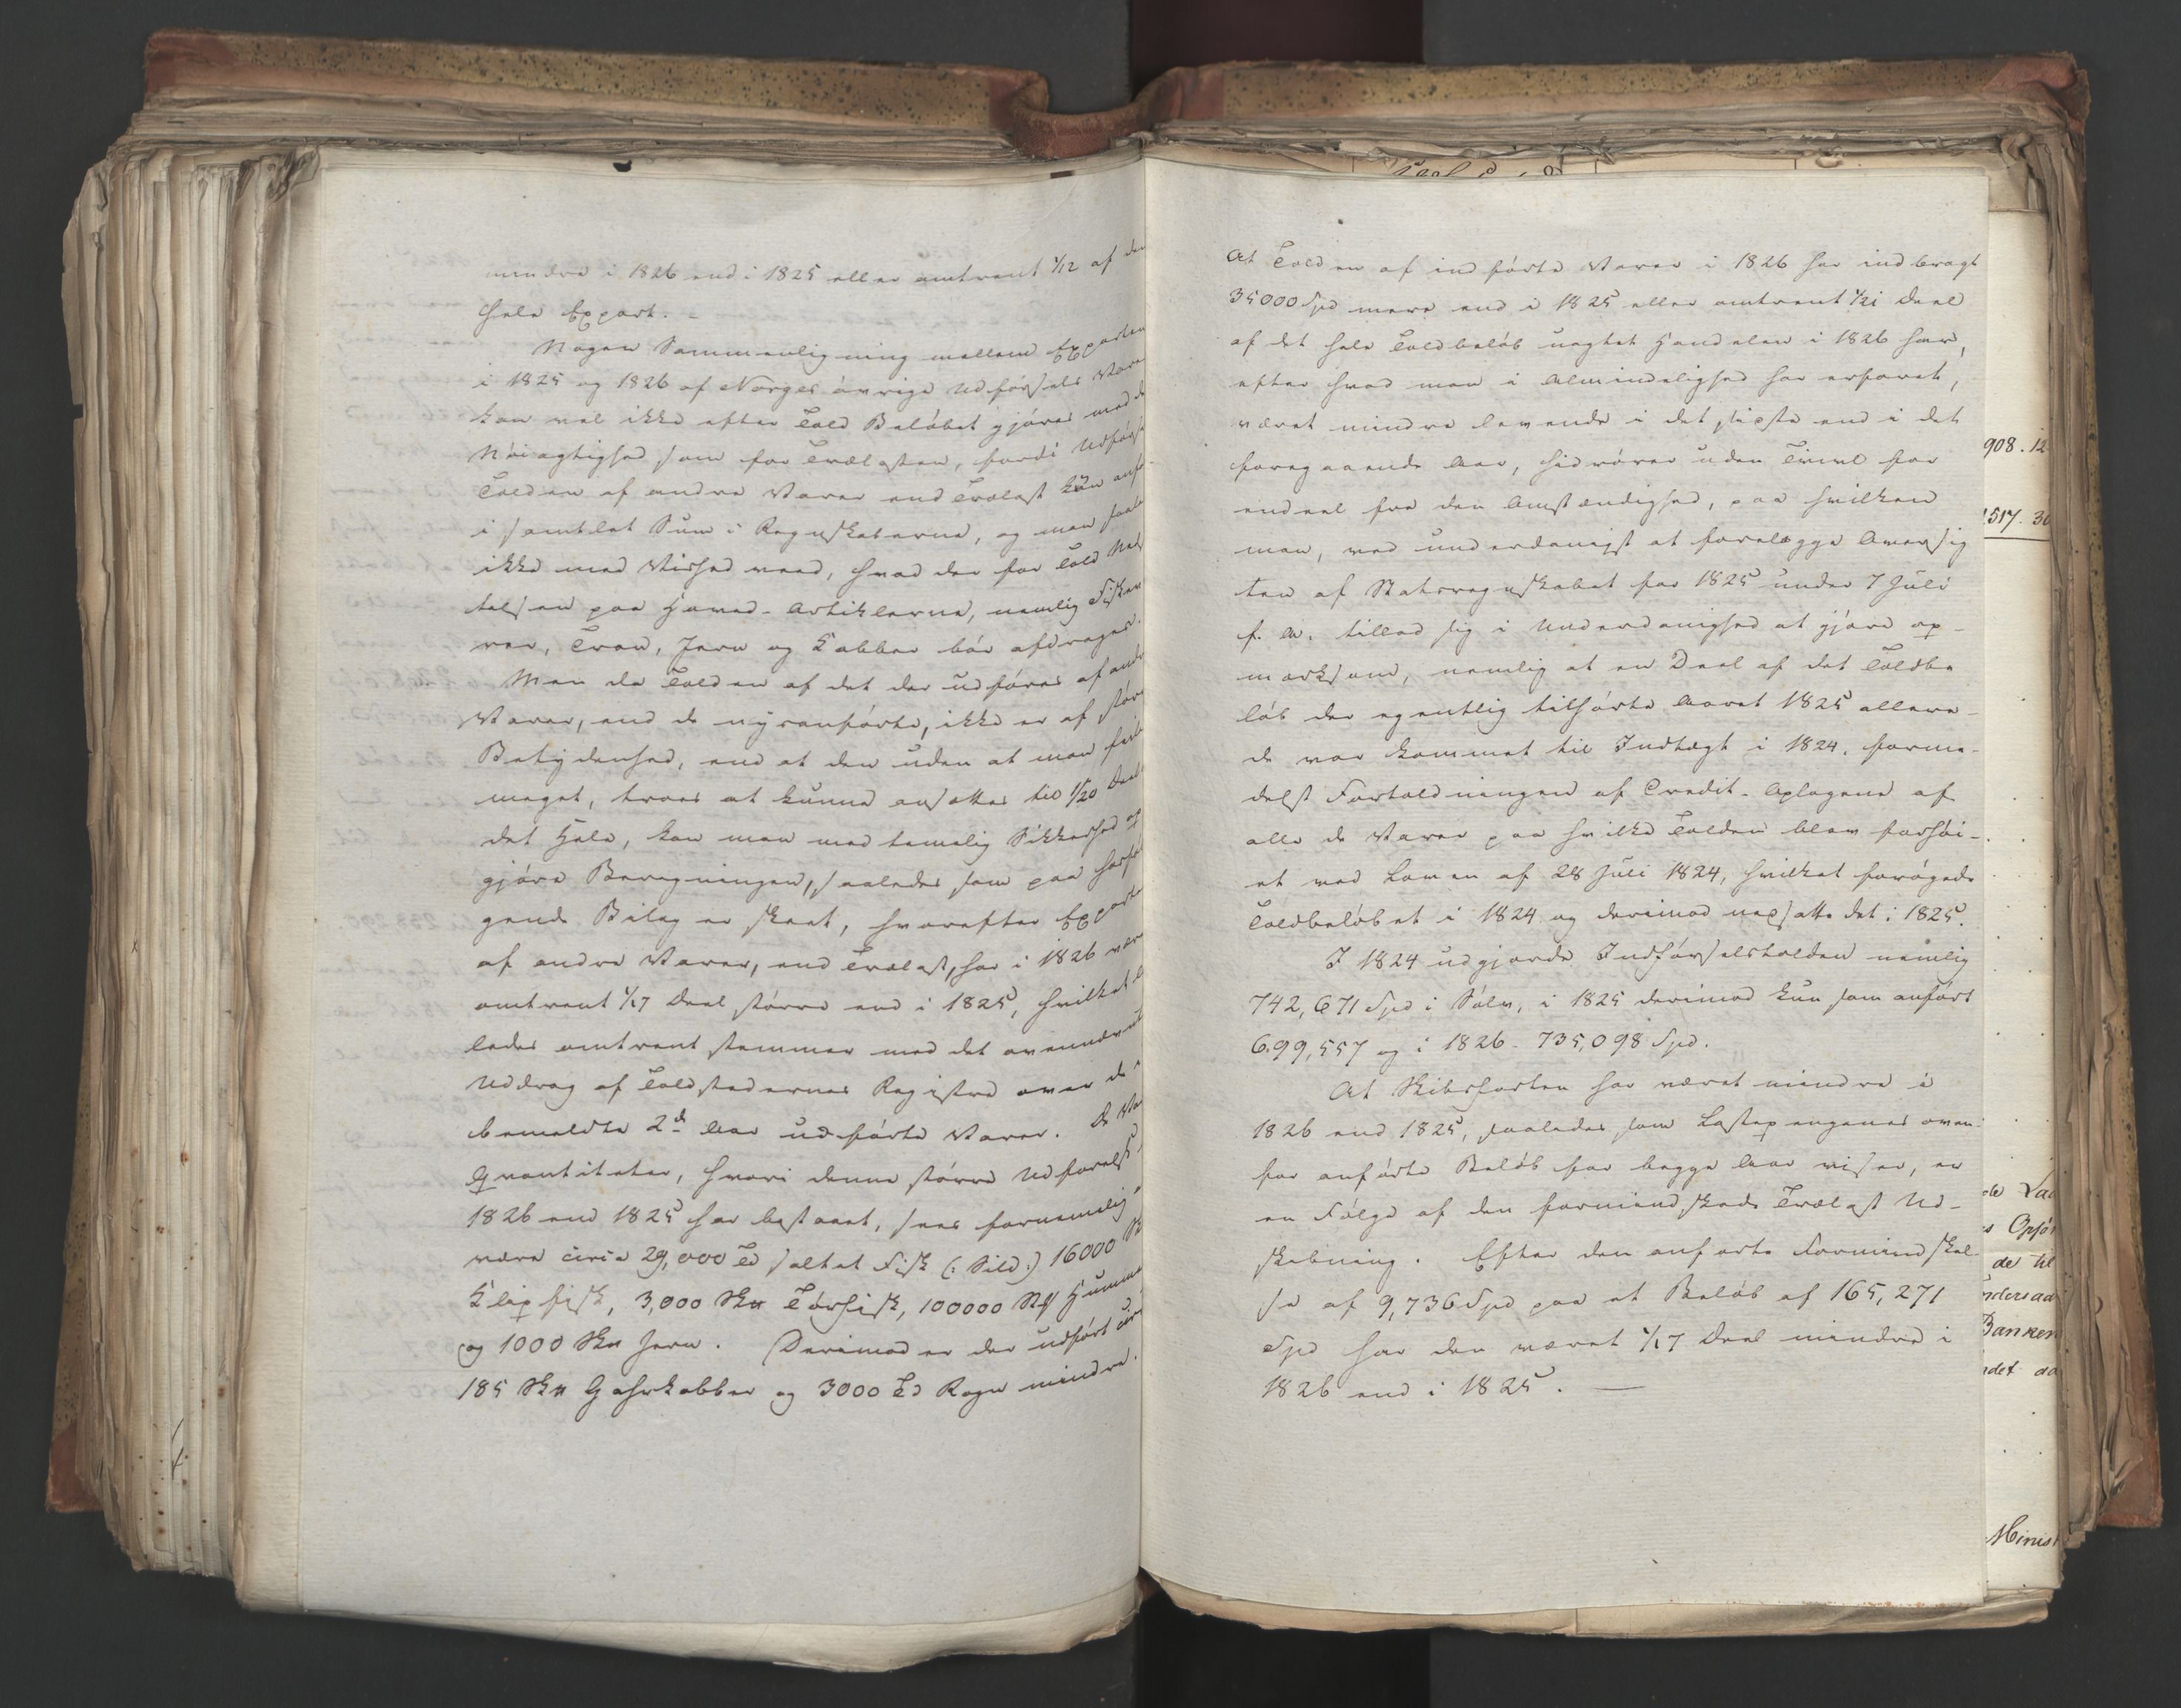 mindre i 1826 end i 1825 eller omtrent 1/12 af den
hele Export. -
Nogen Sammenligning mellem Exporten
i 1825 og 1826 af Norges øvrige Udførsels Varer
kan vel ikke efter Told Beløbet gjøres med
Nøiagtighed som for Trælasten, fordi Udførsel
Tolden af andre Varer end Trælast kun anfø
i samtlet Sum i Regnskaberne, og man saale
ikke med Vished veed, hvad der for Told Ned
telsen paa Hoved-Artiklerne, nemlig Fiskeva
rer, Tran, Jern og Kobber bør afdrages.
Men da Tolden af det der udføres af andre
Varer, end de nysanførte, ikke er af stør
Betydenhed, end at den uden at man feile
meget, troes at kunne ansættes til 1/20 Deel
det Hele, kan man med temelig Sikkerhed op
gjøre Beregningen, saaledes som paa hosføl
gende Bilag er skeet, hvorefter Exporten
af andre Varer, end Trælast, har i 1826 vær
omtrent 1/17 Deel større end i 1825, hvilket
ledes omtrent stemmer med det ovennævn
Uddrag af Toldstedernes Registre over de
bemeldte 2de Aar udførte Varer. De Va
Qvantiteter, hvori denne større Udførelse
1826 end 1825 har bestaaet, sees fornemelig
være circa 29,000 Td saltet Fisk (: Sild :) 16000
Klipfisk, 3,000 Sk℔ Tørfisk, 100000 St Humme
og 1000 Sk℔ Jern. Derimod er der udført cir
185 Sk℔ Gahrkobber og 3000 Td Rogn mindre.
At Tolden af indførte Varer i 1826 har indbragt
35000 Spd mere end i 1825 eller omtrent 1/21 Deel
af det hele Toldbeløb uagtet Handelen i 1826 har,
efter hvad man i Almindelighed har erfaret,
været mindre levende i det sidste end i det
foregaaende Aar, hidrører uden Tvivl for
endeel fra den Omstændighed, paa hvilken
man, ved underdanigst at forelægge Oversig
ten af Statsregnskabet for 1825 under 7 Juli
f. A. tillod sig i Underdanighed at gjøre op-
mærksom, nemlig at en Deel af det Toldbe
løb der egentlig tilhørte Aaret 1825 allere-
de var kommet til Indtægt i 1824, forme-
delst Fortoldningen af Credit-Oplagene af
alle de Varer paa hvilke Tolden blev forhøi-
et ved Loven af 28 Juli 1824, hvilket forøgede
Toldbeløbet i 1824 og derimod nedsatte det i 1825.
I 1824 udgjorde Indførselstolden nemlig
742,671 Spd i Sølv, i 1825 derimod kun som anført
699,557 og i 1826 - 735,098 Spd.
At Skibsfarten har været mindre i
1826 end 1825, saaledes som Lastepengenes oven-
for anførte Beløb for begge Aar viser, er
en Følge af den formindskede Trælast Ud-
skibning. Efter den anførte Formindskel-
se af 9,736 Spd paa et Beløb af 165,271
Spd har den været 1/17 Deel mindre i
1826 end i 1825. —
908. 12
517. 30
de til
Banken
Minis